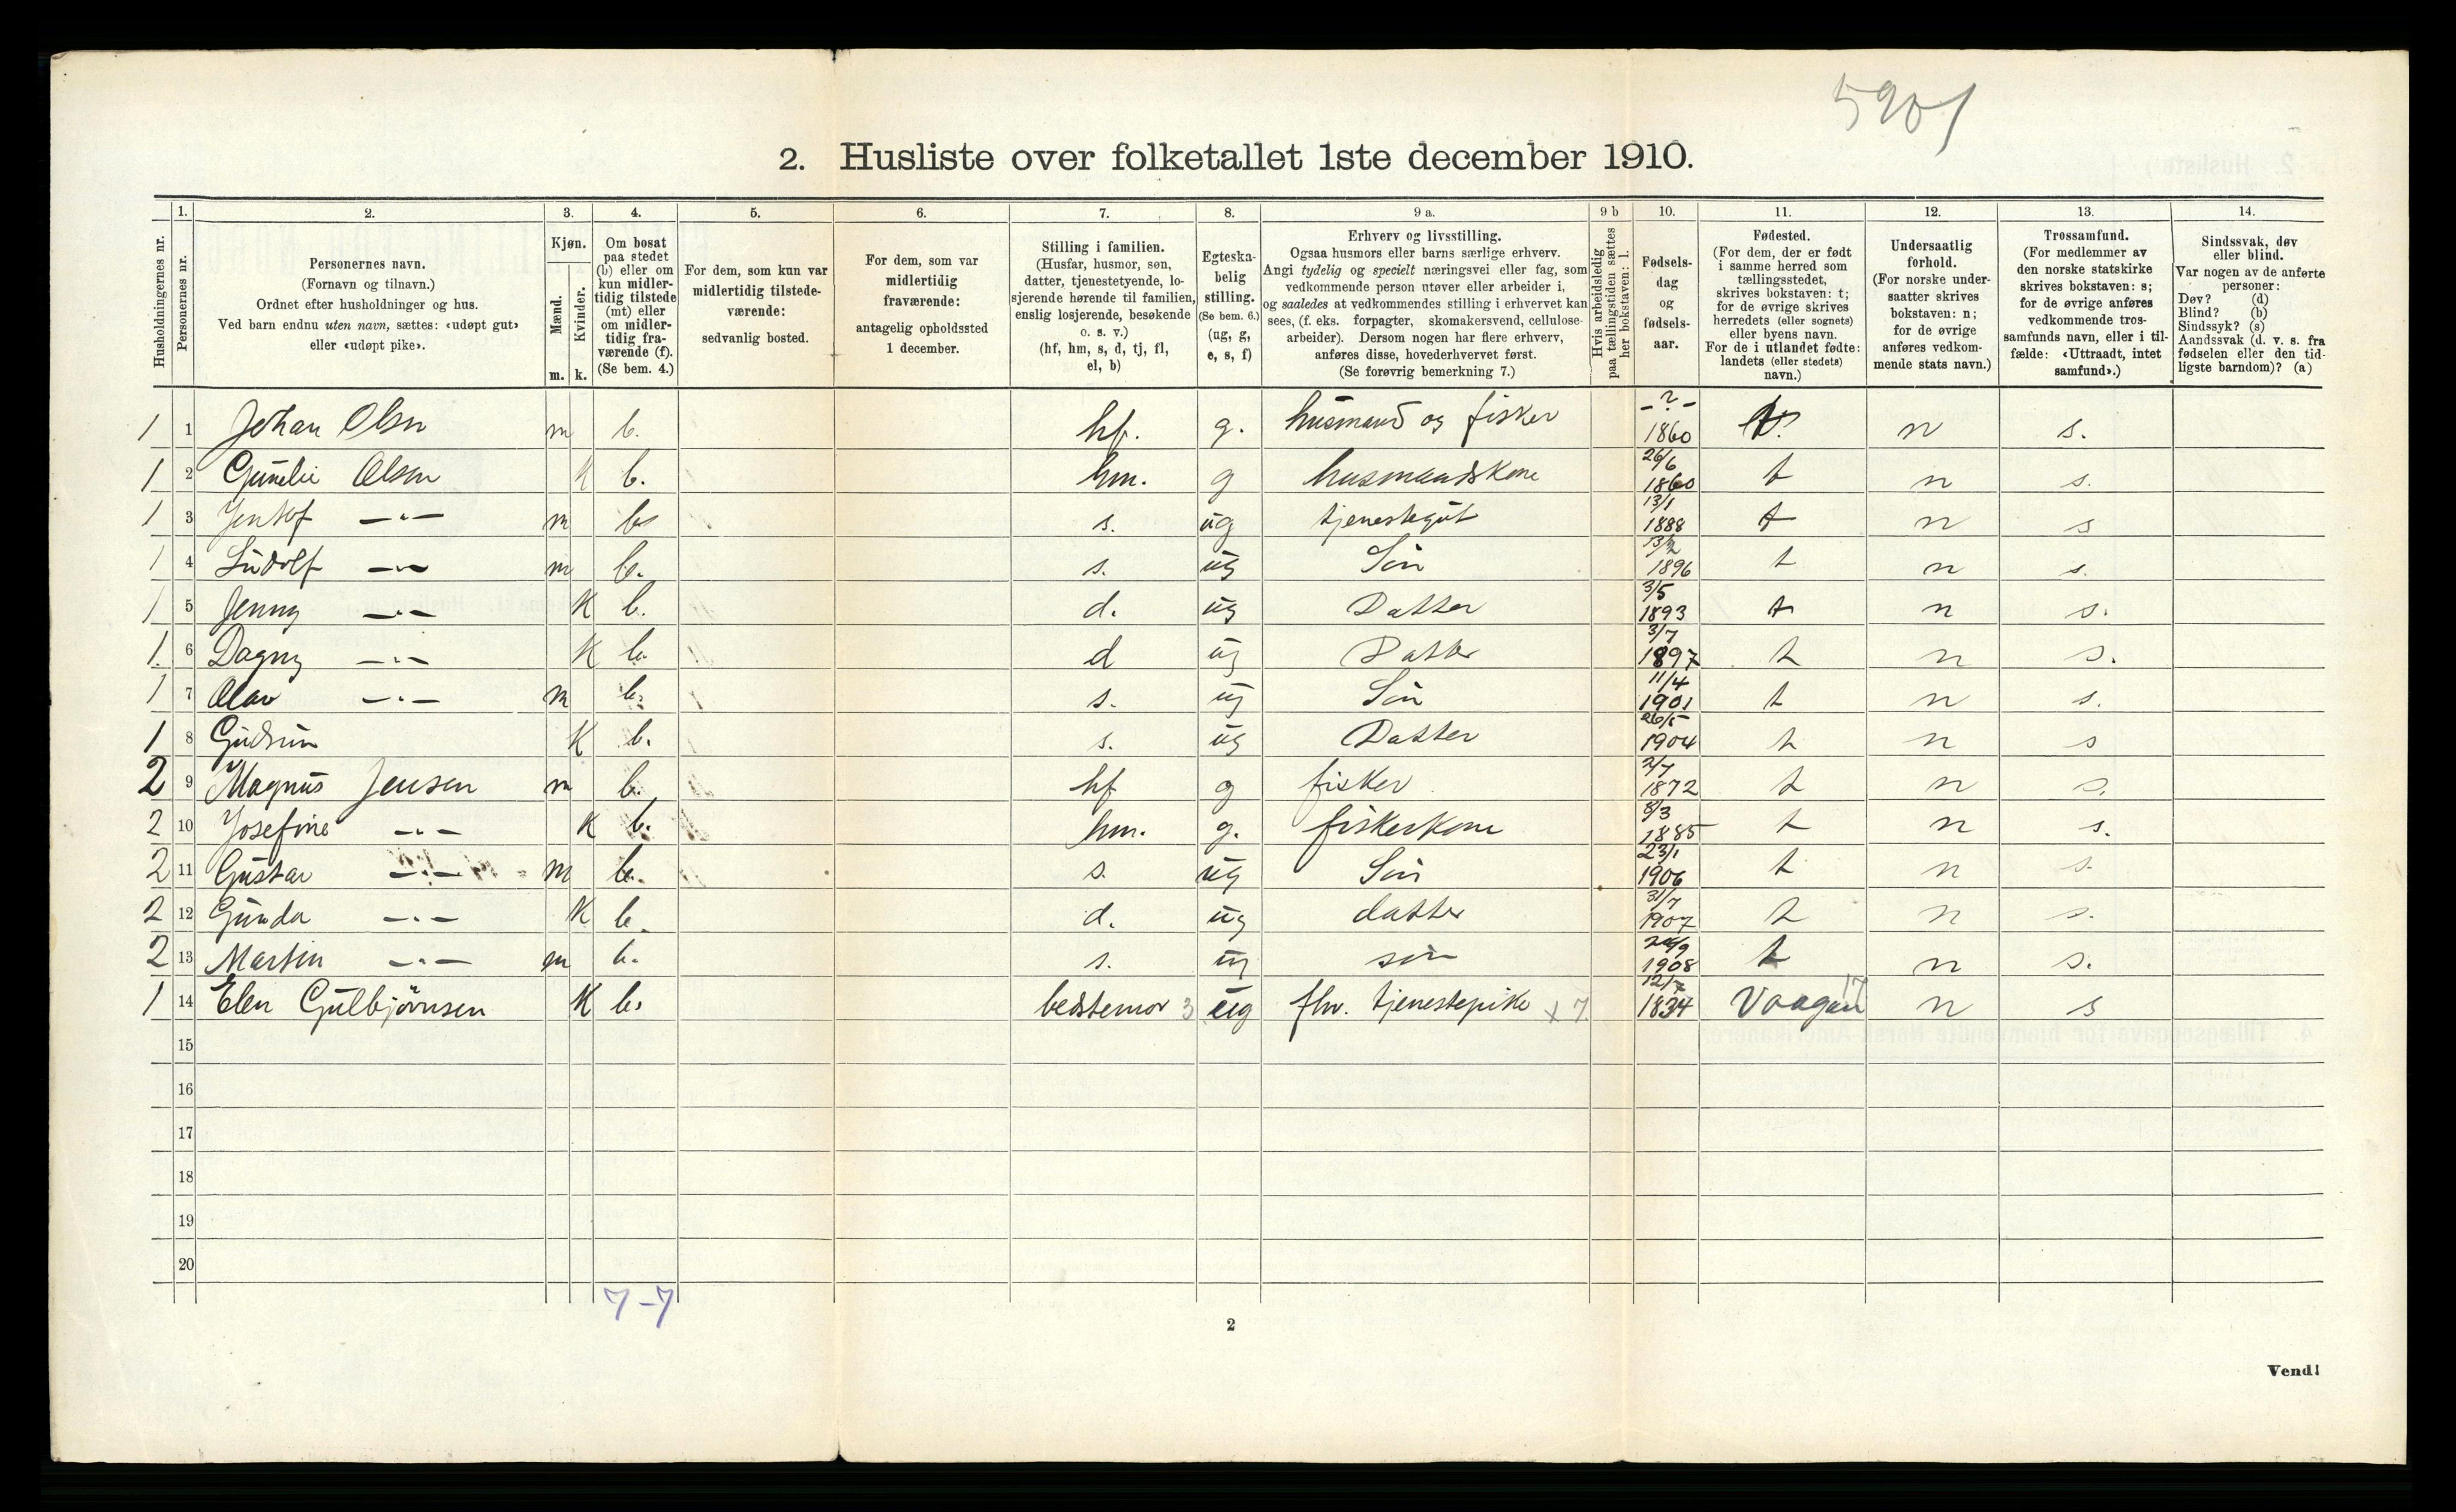 5901
2. Husliste over folketallet 1ste december 1910.
Husholdningernes nr.
1. Personernes nr.
2. Personernes navn.
(Fornavn og tilnavn.)
Ordnet efter husholdninger og hus.
Ved barn endnu uten navn, sættes: «udøpt gut»
eller «udøpt pike».
3. Kjøn.
Mænd. Kvinder.
m. k.
4. Om bosat
paa stedet
(b) eller om
kun midler-
tidig tilstede
(mt) eller
om midler-
tidig fra-
værende (f).
(Se bem. 4.)
5. For dem, som kun var
midlertidig tilstede-
værende:
sedvanlig bosted.
6. For dem, som var
midlertidig
fraværende:
antagelig opholdssted
1 december.
7. Stilling i familien.
(Husfar, husmor, søn,
datter, tjenestetyende, lo-
sjerende hørende til familien,
enslig losjerende, besøkende
o. s. v.)
(hf, hm, s, d, tj, fl,
el, b)
8. Egteska-
belig
stilling.
(Se bem. 6.)
(ug, g,
e, s, f)
9 a. Erhverv og livsstilling.
Ogsaa husmors eller barns særlige erhverv.
Angi tydelig og specielt næringsvei eller fag, som
vedkommende person utøver eller arbeider i,
og saaledes at vedkommendes stilling i erhvervet kan
sees, (f. eks. forpagter, skomakersvend, cellulose-
arbeider). Dersom nogen har flere erhverv,
anføres disse, hovederhvervet først.
(Se forøvrig bemerkning 7.)
9 b Hvis arbeidsledig
paa tællingstiden sættes
her bokstaven: l.
10. Fødsels-
dag
og
fødsels-
aar.
11. Fødested.
(For dem, der er født
i samme herred som
tællingsstedet,
skrives bokstaven: t;
for de øvrige skrives
herredets (eller sognets)
eller byens navn.
For de i utlandet fødte:
landets (eller stedets)
navn.)
12. Undersaatlig
forhold.
(For norske under-
saatter skrives
bokstaven: n;
for de øvrige
anføres vedkom-
mende stats navn.)
13. Trossamfund.
(For medlemmer av
den norske statskirke
skrives bokstaven: s;
for de øvrige anføres
vedkommende tros-
samfunds navn, eller i til-
fælde: «Uttraadt, intet
samfund».)
14. Sindssvak, døv
eller blind.
Var nogen av de anførte
personer:
Døv? (d)
Blind? (b)
Sindssyk? (s)
Aandssvak (d. v. s. fra
fødselen eller den tid-
ligste barndom)? (a)
1 1 Johan Olsn m b. hf. g. husmand og fisker -?- 1860 t n s.
1 2 Olsen k b. hm. g husmandskone 26/6 1860 t n s.
1 3 -"- m b s. ug tjenestegut 13/1 1888 t n s
1 4 Ludolf -"- m b. s. ug Sön 1896 t n s.
1 5 Jenny -"- K b. d. ug Datter 3/5 1893 t n s.
1. 6 Dagny -"- K b. d ug Datter 3/7 1897 t n s.
1 7 Olav -"- m b. s. ug Sön 11/4 1901 t n s.
1 8 Gudrun K b. s. ug Datter 26/5 1904 t n s
2 9 Magnus Jensen m b. hf g fisker 2/7 1872 t n s.
2 10 Josefine -"- K b. hm. g. fiskerkone 8/3 1885 t n s.
2 11 Gustav -"- m b. s. ug Sön 23/1 1906 t n s.
2 12 Gunda -"- K b. d. ug datter 31/7 1907 t n s.
2 13 Martin -"- m b. s. ug sön 1908 t n s.
1 14 Elen Gulbjörnsen K b. bedstemor 3 ug fhv. tjenestepike x 7 12/7 1834 Vaagan 17 n s
15
16
17
18
19
20
7-7
2
Vend!